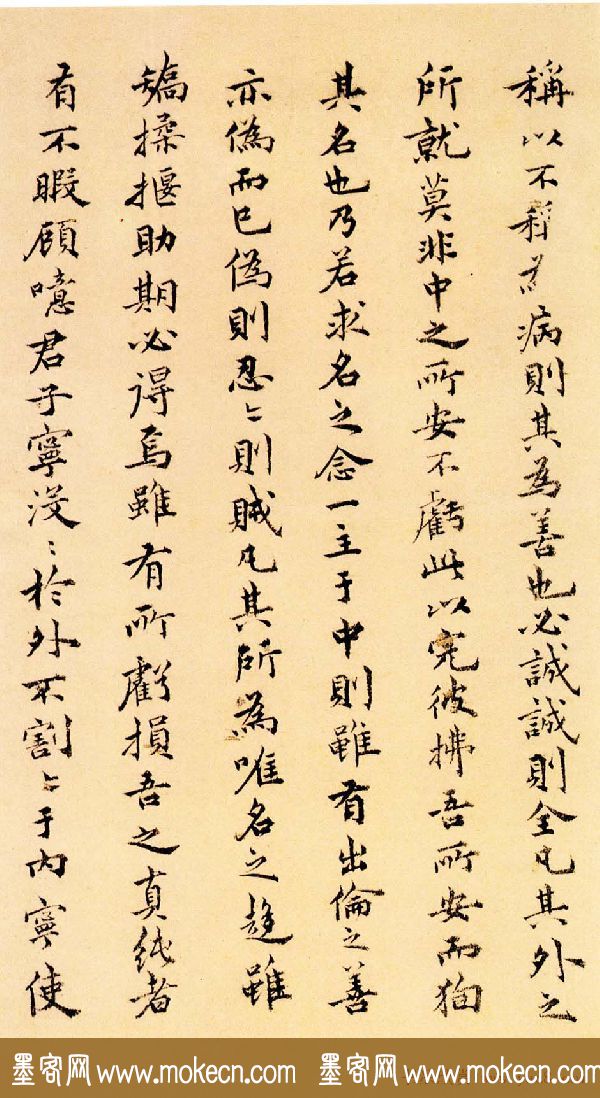 稱以不稱为病則其為善也必誠誠則全凡其外之
所就莫非中之所安不虧此以完彼拂吾所安而狥
其名也乃若求名之念一主于中則雖有出倫之善
亦偽而已偽則忍〻則賊凡其所為唯名之趋雖
矯揉揠助期必得焉雖有所虧損吾之真純者
有不暇顧噫君子寧没〻於外不割〻于内寧使
墨客网 www.mokecn.com 墨客网 www.mokecn.com